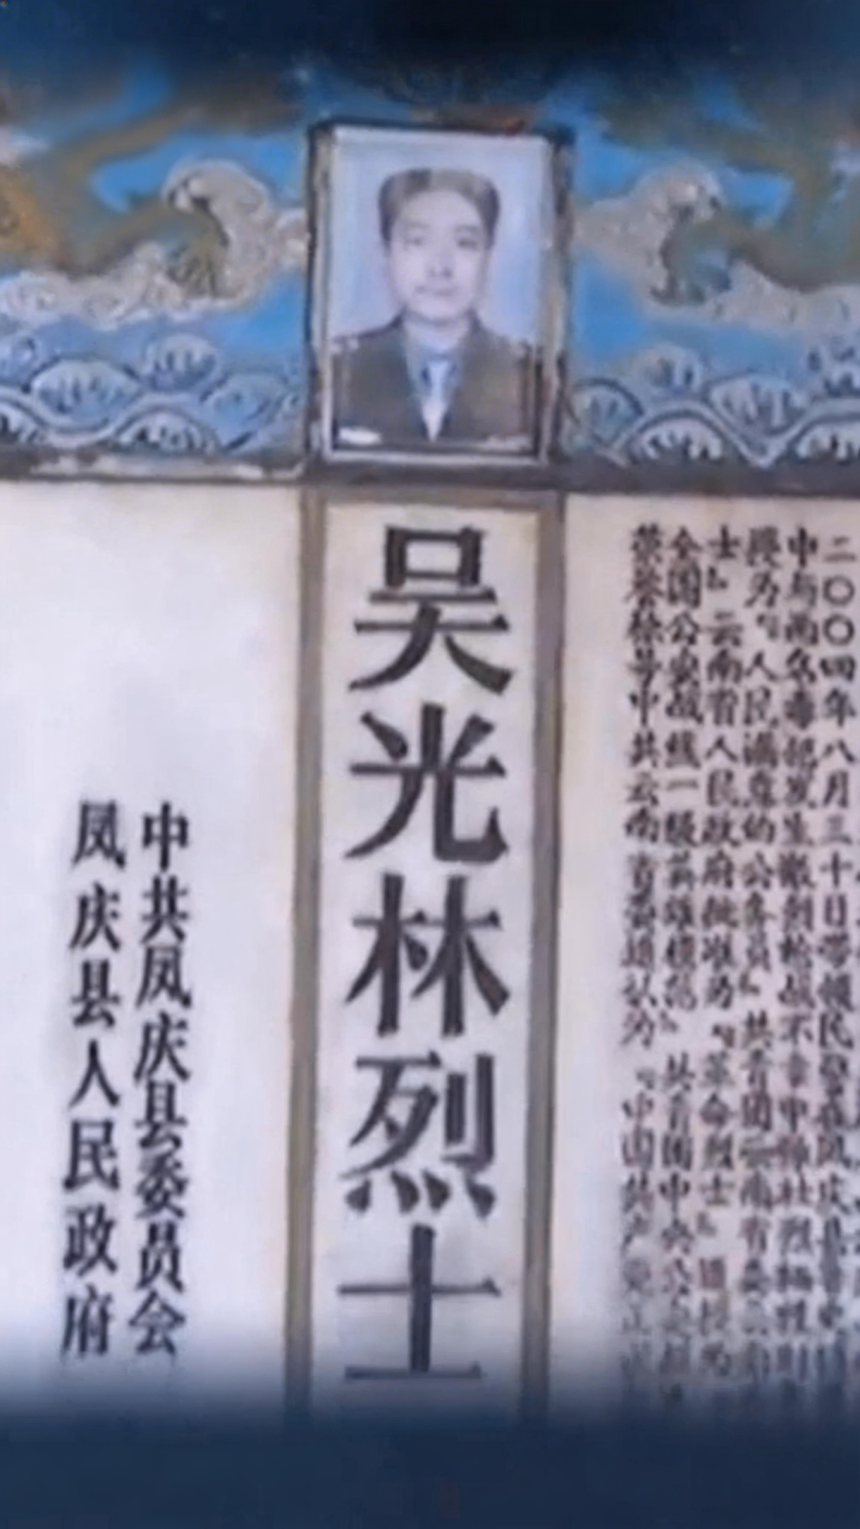 二〇〇四年八月三十日带领民警在凤庆县
中与两名毒犯发生激烈枪战不幸中弹壮烈牺牲
授为“人民满意的公务员”共青团云南省委
士”云南省人民政府批准为“革命烈士”追授为
全国公安战线一级英雄模范”共青团中央公安部追
荣誉称号中共云南省委追认为“中国共产党正式
吴光林烈士
中共凤庆县委员会
凤庆县人民政府